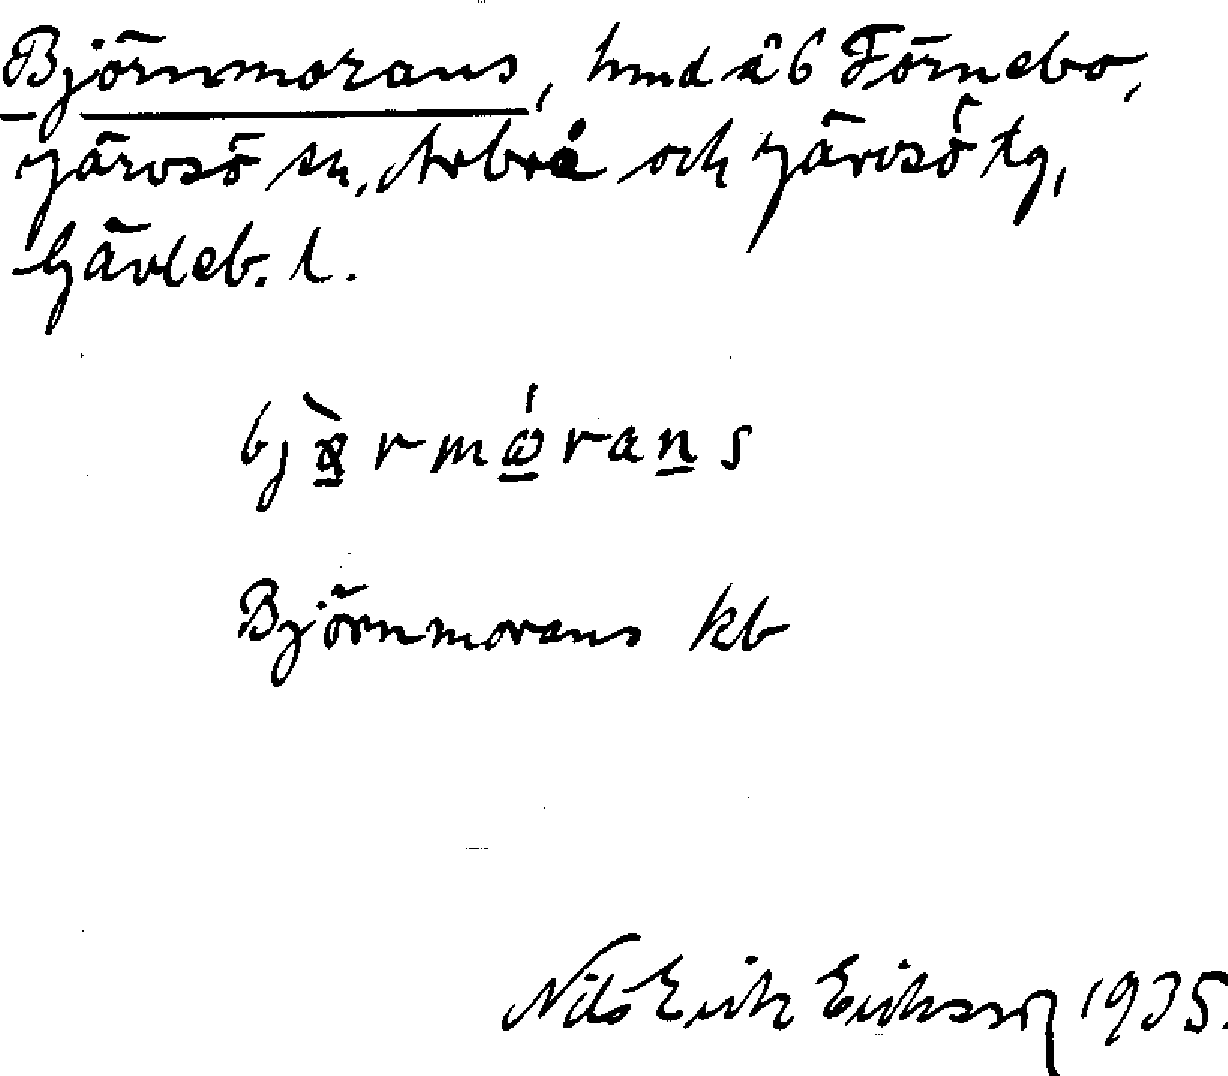 Björnmorans, hmd å 6 Förnebo,
Järvsö sn, Arbrå och Järvsö tg,
Gävleb. l.
bjö̀rmórans
Björnmorans kb
Nils Erik Eriksson 1935.